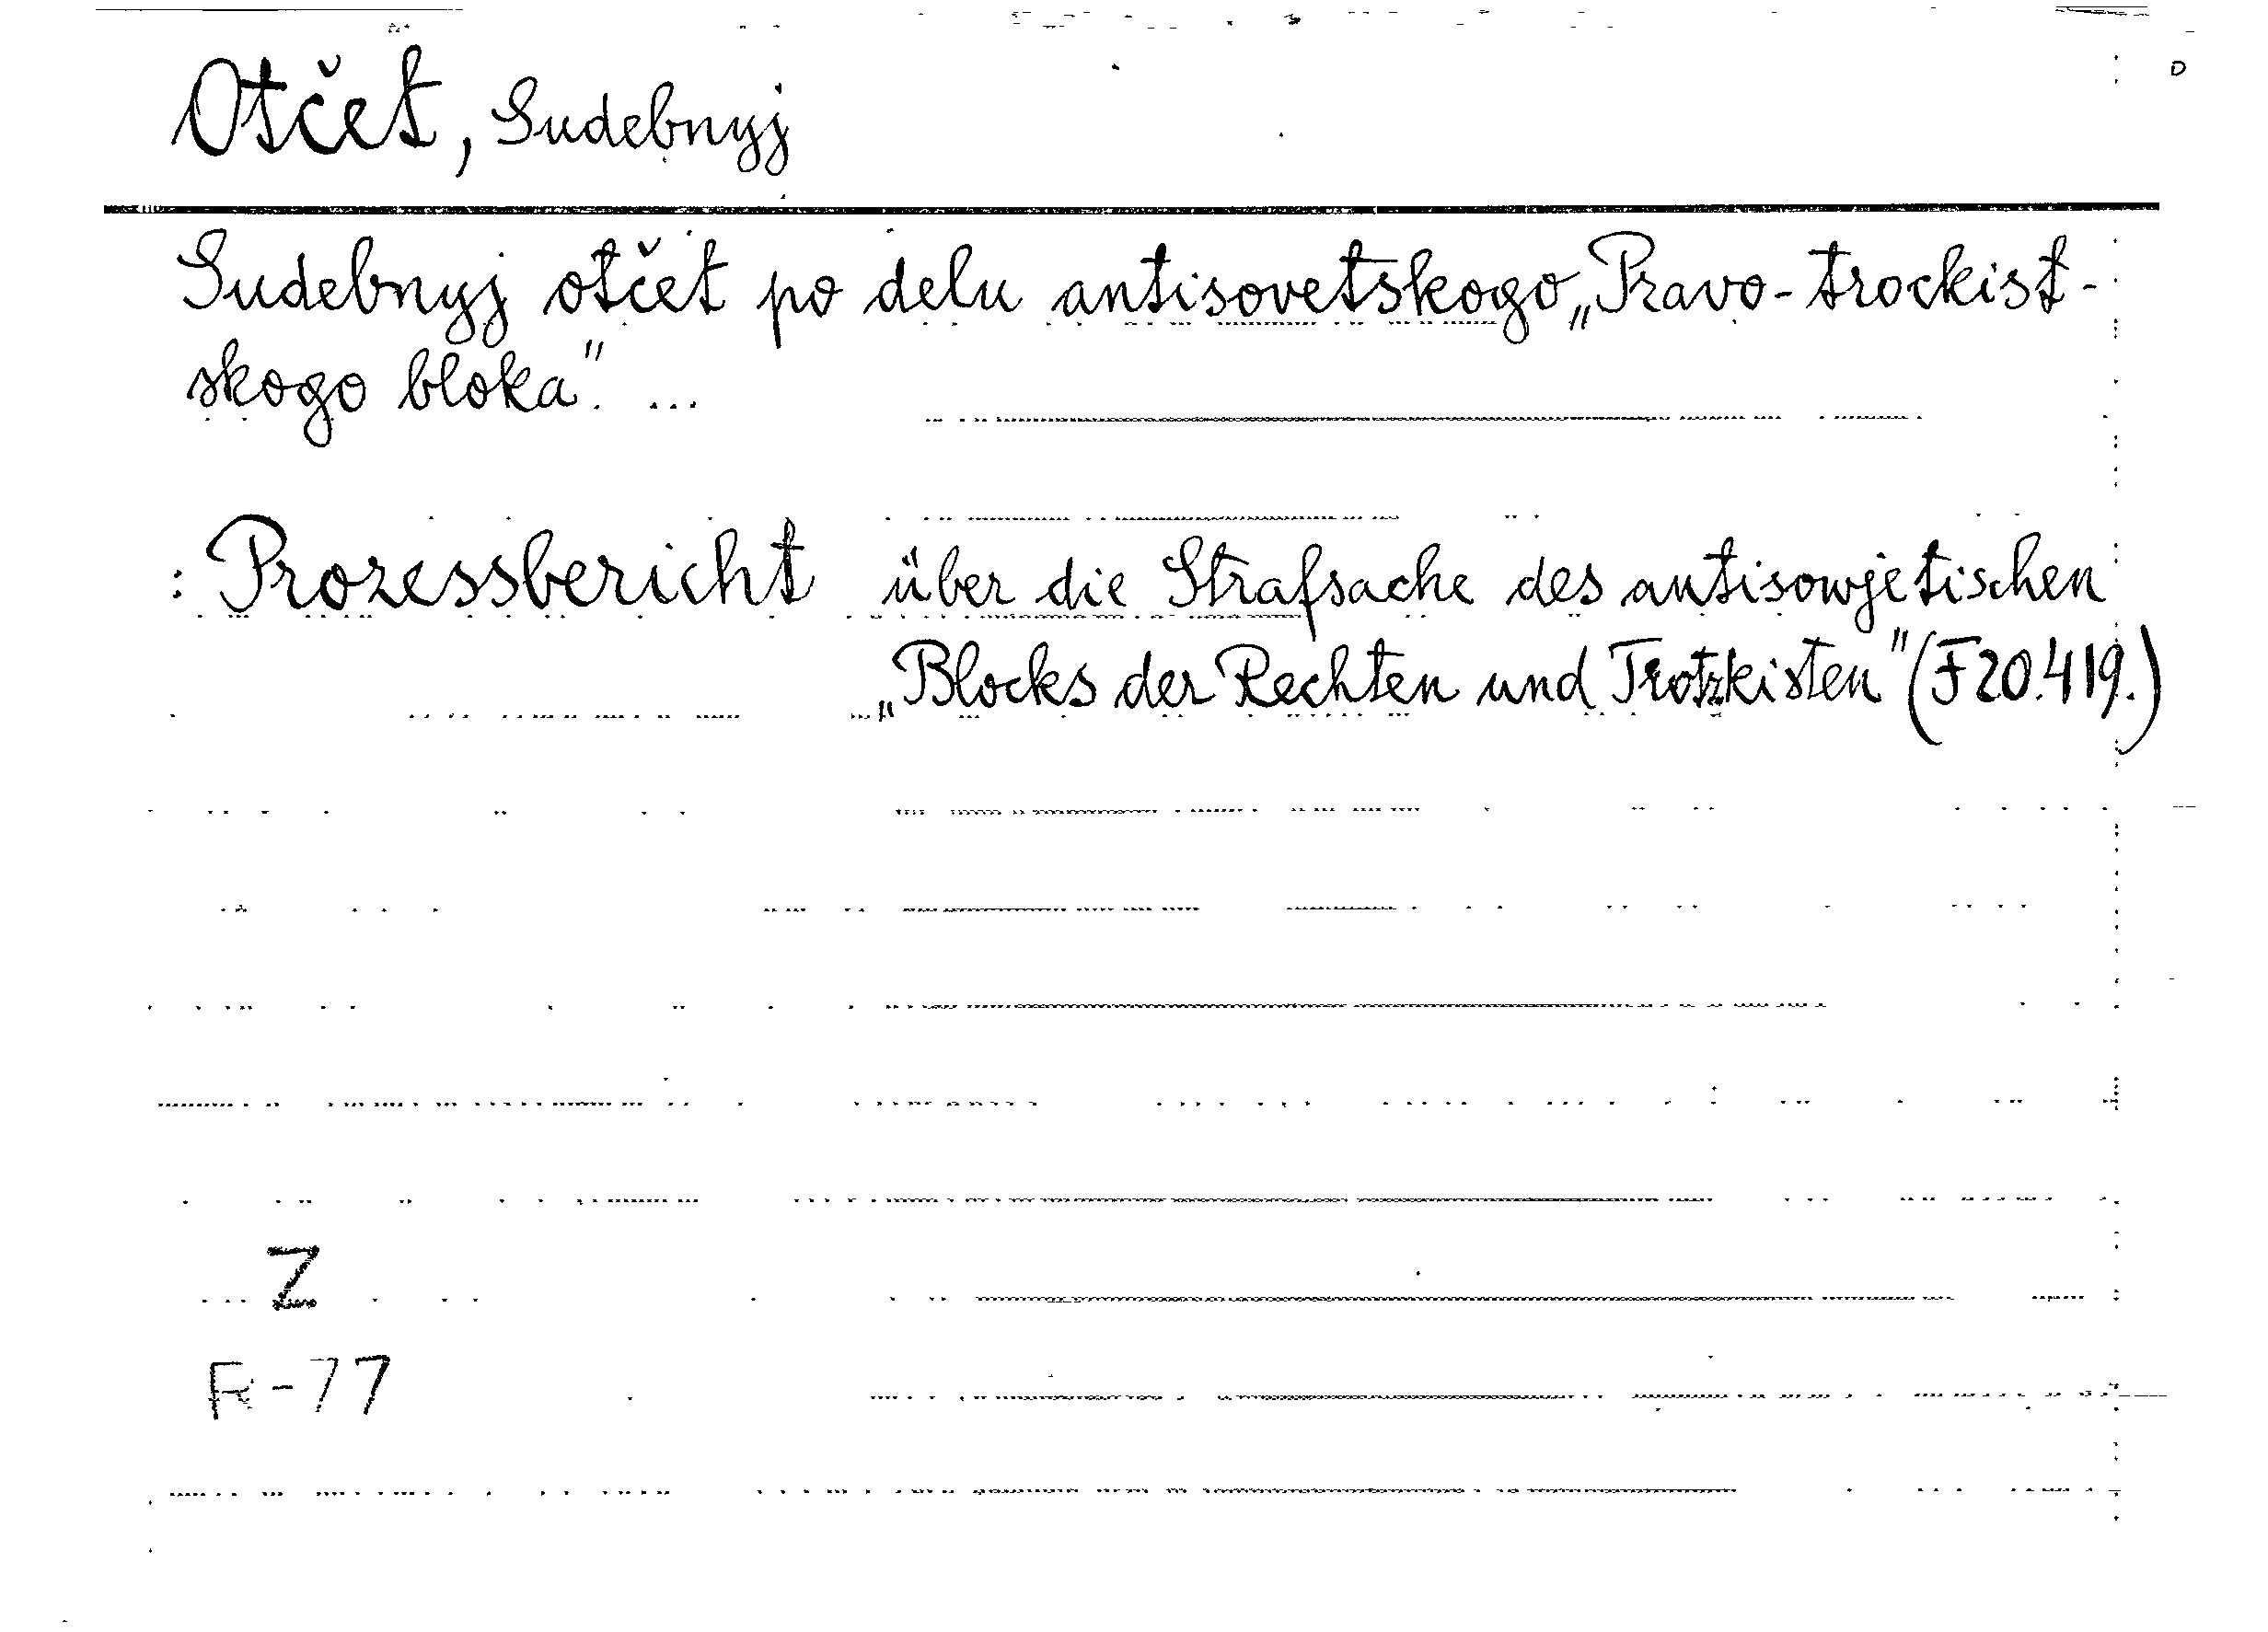 Otčet, Sudebnyj
Sudebnyj otčet po delu antisovetskogo „Pravo-trockist-
skogo bloka". ...
: Prozessbericht über die Strafsache des antisowjetischen
„Blocks der Rechten und Trotzkisten" (F20.419.)
Z
R-77